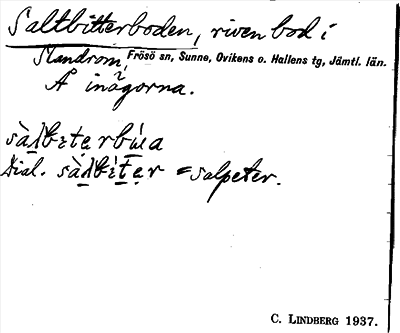 Saltbitterboden, riven bod i
Mandrom, Frösö sn, Sunne, Ovikens o. Hallens tg, Jämtl. län.
Å inägorna.
Dial. = salpeter.
C. LINDBERG 1937.